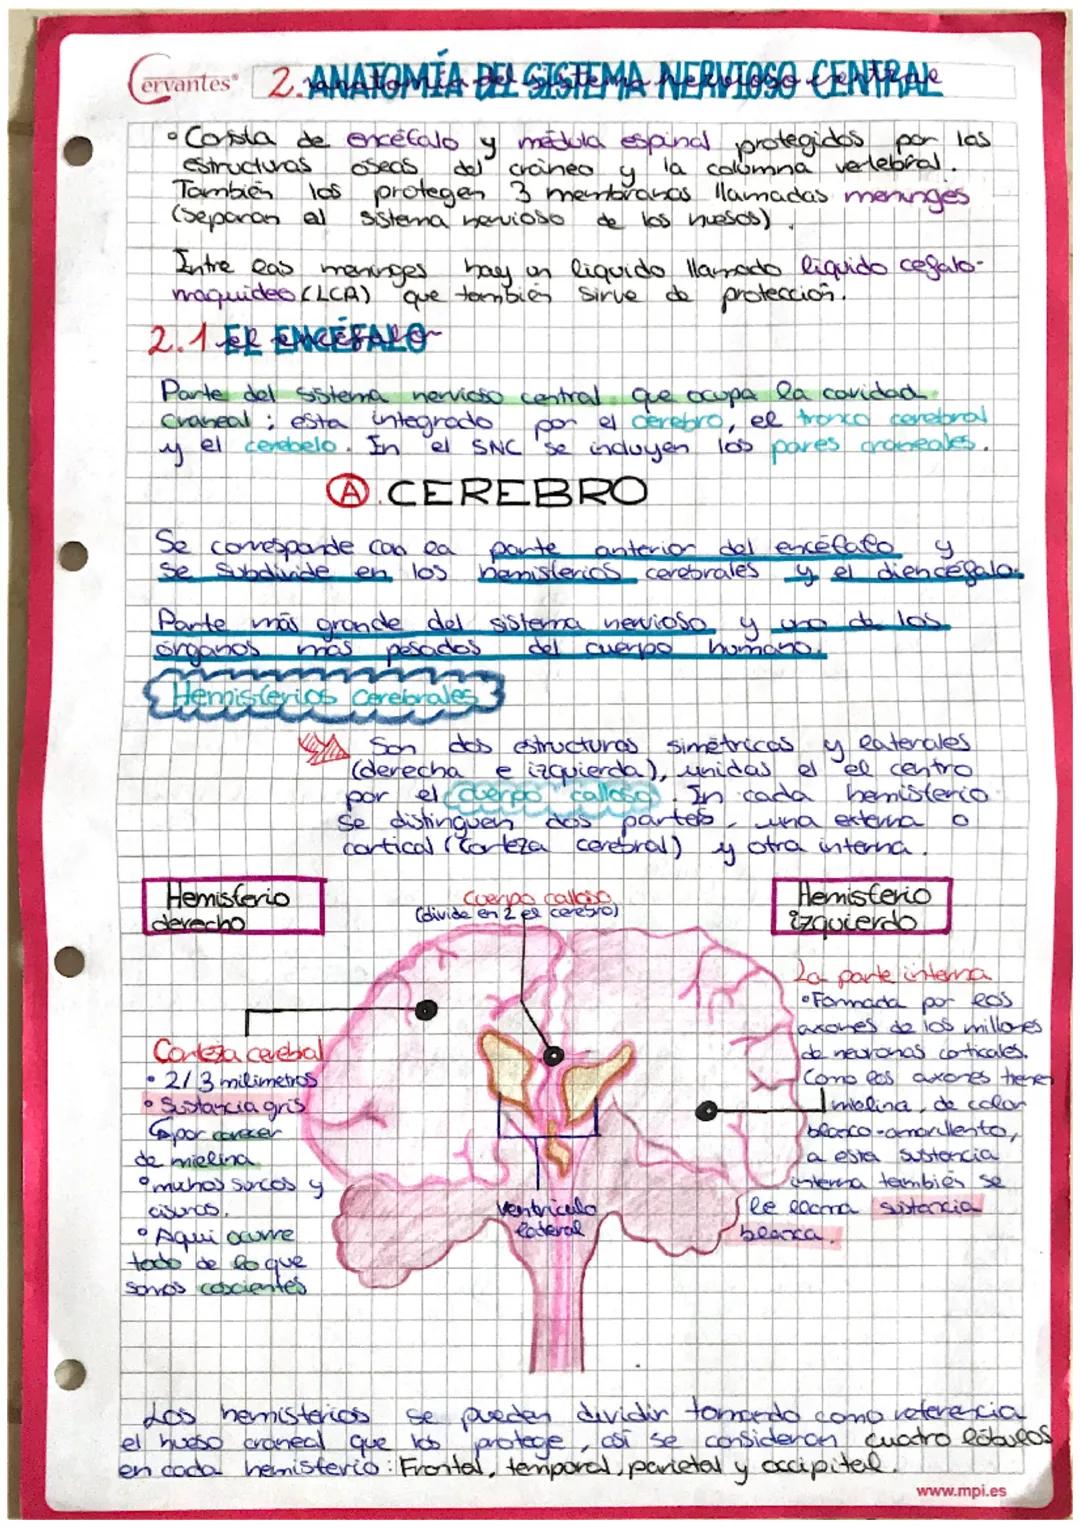 Cervantes®
2. ANATOMÍA DEL SISTEMA NERVIOSO CENTRAL
• Consta de encéfalo y médula espinal protegidos por las
estructuras oseas del cráneo y la columna vertebral.
También los protegen 3 membranas llamadas meninges
(separan el sistema nervioso de los huesos).
Entre las meninges hay un líquido llamado líquido cefalo-
rraquideo (LCA) que también sirve de protección.
2.1 EL ENCÉFALO
Parte del sistema nervioso central que ocupa la cavidad
craneal; esta integrado por el cerebro, el tronco cerebral
y el cerebelo. En el SNC se incluyen los pares craneales.
A. CEREBRO
Se corresponde con la parte anterior del encéfalo y
se subdivide en los hemisferios cerebrales y el diencéfalo.
Parte más grande del sistema nervioso y uno de los
órganos más pesados del cuerpo humano.
Hemisferios cerebrales
Son dos estructuras simétricas y laterales
(derecha e izquierda), unidas el el centro
por el cuerpo calloso. En cada hemisferio
se distinguen dos partes, una externa o
cortical (corteza cerebral) y otra interna.
Hemisferio
derecho
Cuerpo calloso
(divide en 2 el cerebro)
Hemisferio
izquierdo
Corteza cerebral
• 2/3 milimetros
• Sustancia gris
por carecer
de mielina
• muchos surcos y
cisuras.
• Aqui ocurre
todo de lo que
somos coscientes
ventrículo
lateral
La parte interna
• Formada por los
axones de los millones
de neuronas corticales.
Como los axones tienen
mielina, de color
blanco-amarillento,
a esta sustancia
interna también se
le llama sustancia
blanca.
Los hemisferios se pueden dividir tomando como referencia
el hueso craneal que los protege, así se consideran cuatro lóbulos
en cada hemisferio: Frontal, temporal, parietal y occipital.
www.mpi.es